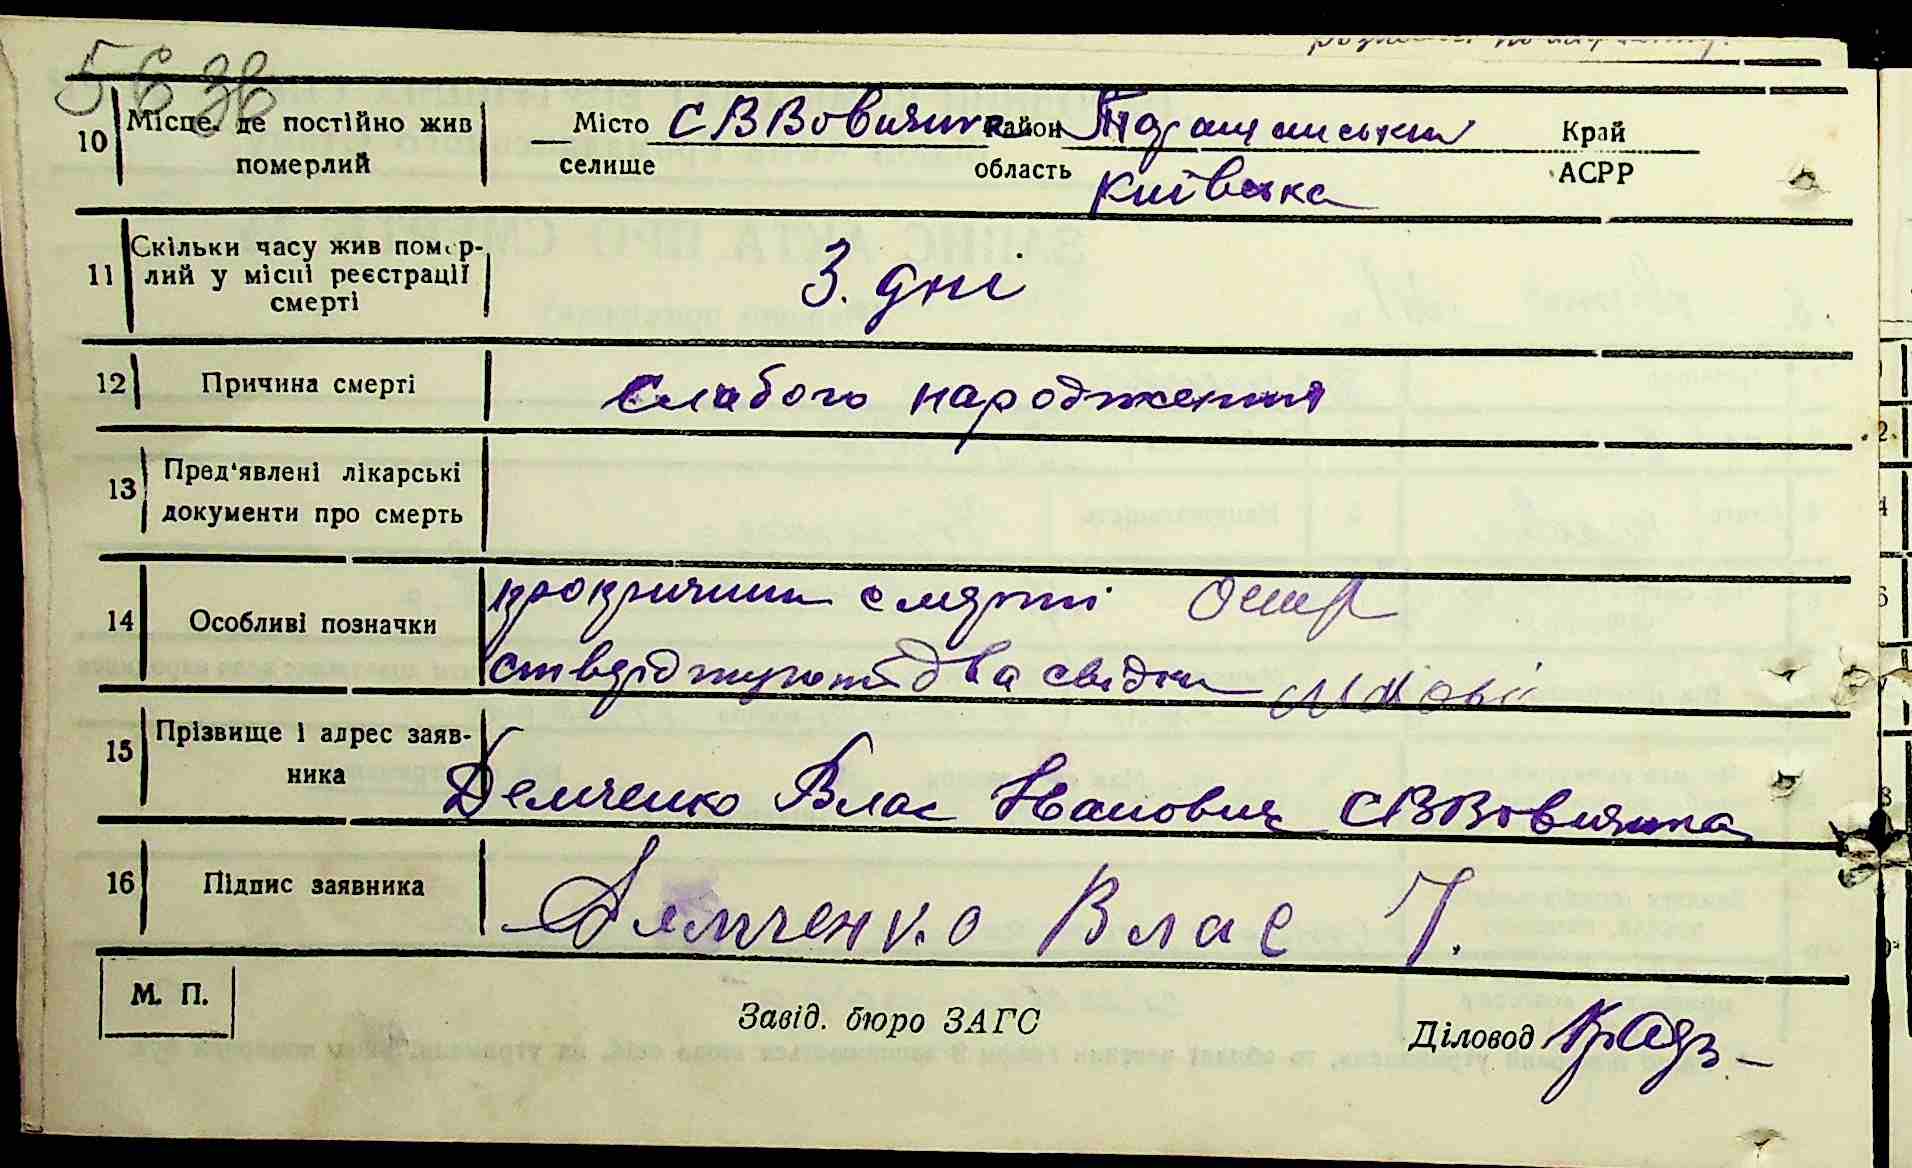 5636
10 Місце, де постійно жив померлий
Місто селище С ВВовнянка Район область Таращанський Київська Край АСРР
11 Скільки часу жив померлий у місці реєстрації смерті
3 дні
12 Причина смерті
слабого народження
13 Пред'явлені лікарські документи про смерть
14 Особливі позначки
пропричини смярті
ствярджують два свідки
15 Прізвище і адрес заявника
Демченко Влас Іванович СВВовнянка
16 Підпис заявника
Демченко Влас І.
М. П.
Завід. бюро ЗАГС
Діловод